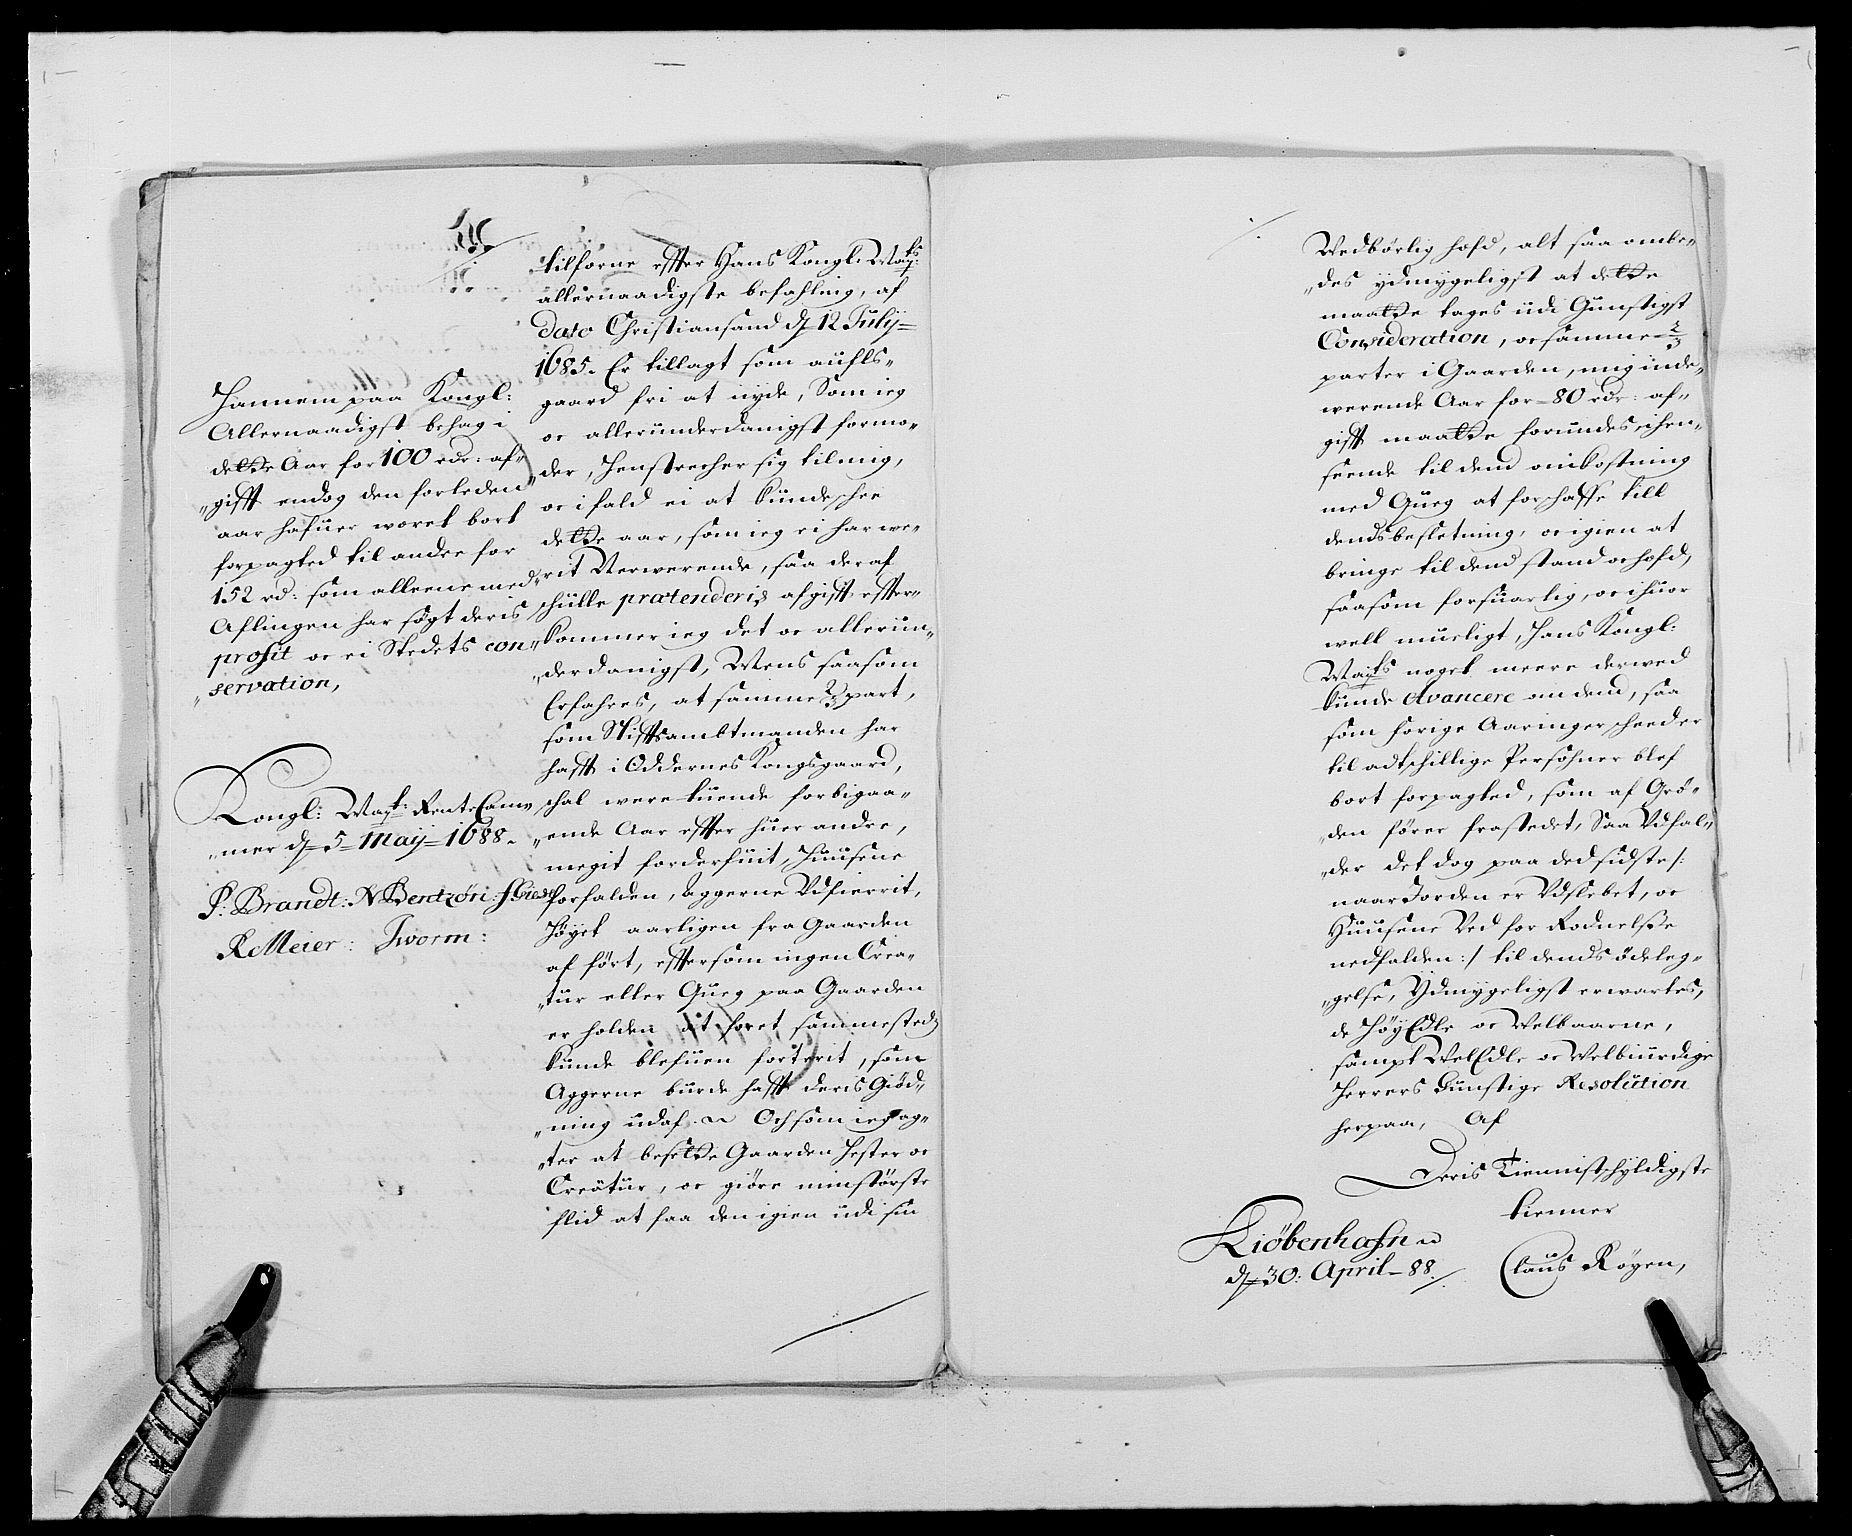 Hannem paa Kongl:
Allernaadigst behag i
dette Aar for 100 rdr: af„
„gifft endog den forleden
aar hafuer woret bort
forpagted til andre for
152 rd: som alleene med
Aflingen har søgt deris
profit oc ei Stedets con„
„servation,
Kongl: Mayt: Rente Cam„
„mer d 5 Maij 1688.
P: Brandt: N Bentzön:
R Meier: Iworm:
tilforne effter Hans Kongl: Mayts:
allernaadigste befahling, af
Dato Christiansand d 12 Julij
1685. Er tillagt som aufls„
gaard fri at nyde, Som ieg
oc allerunderdanigst formo„
der, henstrecher sig til mig,
oc ifald ei at kunde schee
dette aar, som ieg ei har we„
rit Nerwerende, saa der af
schulle prætenderis afgifft effter„
„kommer ieg det oc allerun„
„derdanigst, Mens saasom
Erfahres, at samme 2/3 part,
som Stifftsambtmanden har
hafft i Oddernes Kongsgaard,
schal were tuende forbigaa„
„ende Aar effter huer andre,
megit forderfuit, Huusene
forfalden, Aggerne Udfierrit,
Høyet aarligen fra Gaarden
af ført, efftersom ingen Crea„
„tur eller Queg paa Gaarden
er holden at foret sammesteds
kunde blefuen forterit, som
Aggerne burde hafft deris Giød„
„ning udaf. Och som ieg ag„
„ter at besette Gaarden Hester oc
Creatur, oc giøre min største
flid at faa den igien udi sin
Wedbørlig hofd, alt saa ombe„
„des ydmygeligst at dette
maatte tages udi Gunstigst
Consideration, oc samme 2/3
parter i Gaarden, mig inde„
werende Aar for 80 rdr: af„
gifft maatte forundes, i hen„
seende til dend omkostning
med Queg at forschaffe till
dends besletning, oc igien at
bringe til dend stand oc hofd,
saasom forsuarlig, oc ihuor
well mueligt, Hans Kongl:
Mayts noget meere derwed
kunde Avancere om dend, saa
som forige Aaringer scheed er
til adtschillige Persohner blef
bort forpagted, som af Grö„
„den fører fra stedet, Saa Udfal„
„der det dog paa ded sidste /:
naar Jorden er Udslebet, oc
Huusene Ved for Rodnelse
nedfalden :/ til dends ödeleg„
„gelse, Ydmygeligst erwartes,
de HøyEdle oc Welbaarne,
sampt WelEdle oc Welbiurdige
Herrers Gunstige Resolution
herpaa, Af
Deris Tiennistschyldigste
tienner
Kiöbenhafn
d 30: April 88.
Claus Røyen,